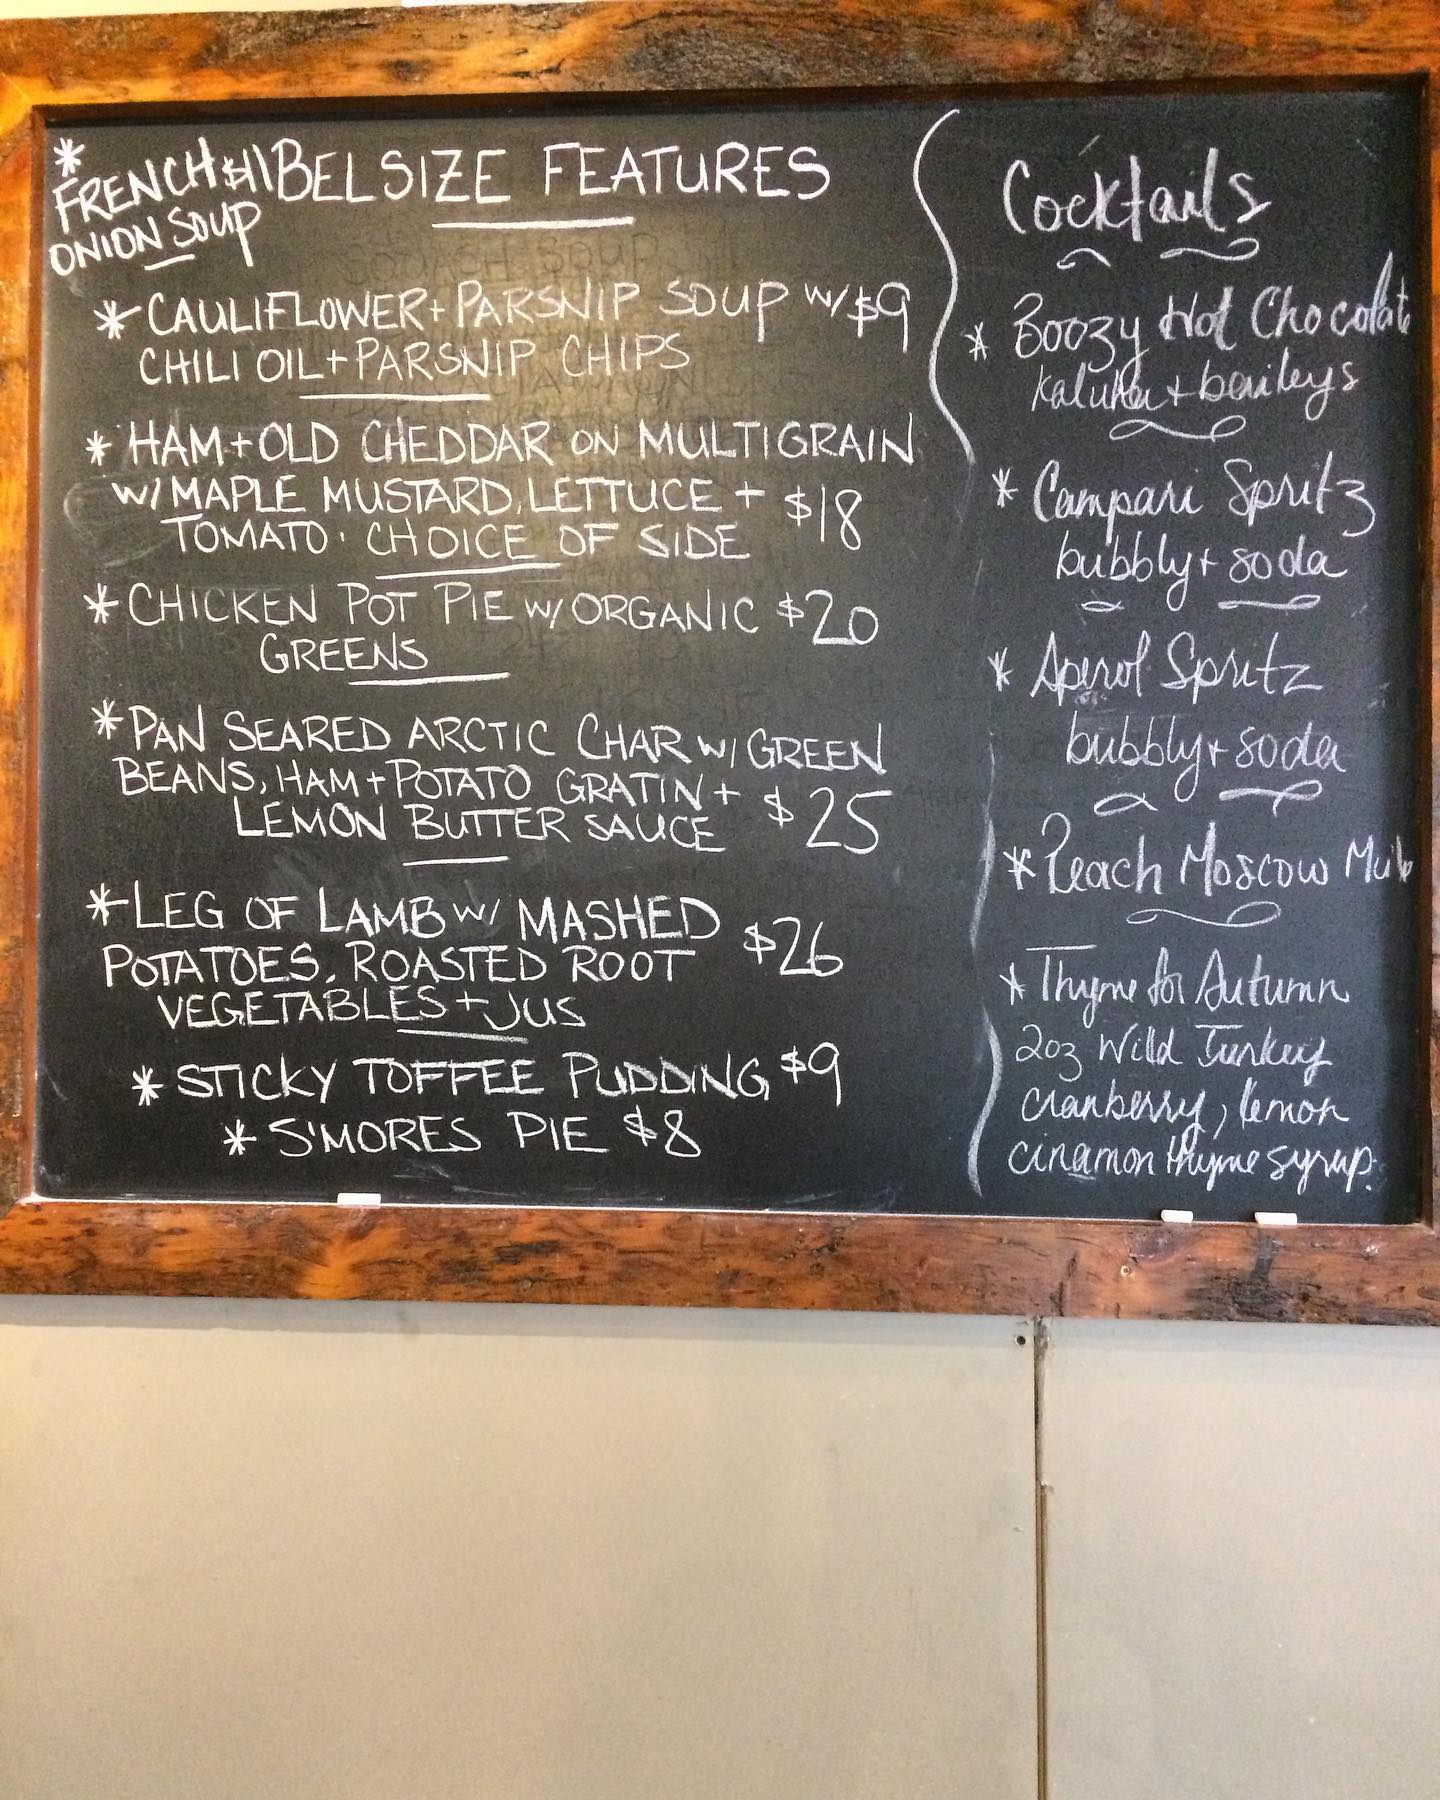 * FRENCH $11
ONION SOUP
BELSIZE FEATURES
* CAULIFLOWER + PARSNIP SOUP W/ $9
CHILI OIL + PARSNIP CHIPS
* HAM + OLD CHEDDAR ON MULTIGRAIN
W/ MAPLE MUSTARD, LETTUCE +
TOMATO · CHOICE OF SIDE $18
* CHICKEN POT PIE W/ ORGANIC $20
GREENS
* PAN SEARED ARCTIC CHAR W/ GREEN
BEANS, HAM + POTATO GRATIN +
LEMON BUTTER SAUCE $25
* LEG OF LAMB W/ MASHED
POTATOES, ROASTED ROOT $26
VEGETABLES + JUS
* STICKY TOFFEE PUDDING $9
* S'MORES PIE $8
Cocktails
* Boozy Hot Chocolate
Kaluha + baileys
* Campari Spritz
bubbly + soda
* Aperol Spritz
bubbly + soda
* Peach Moscow Mule
* Thyme for Autumn
2oz Wild Turkey
cranberry, lemon
cinamon thyme syrup.